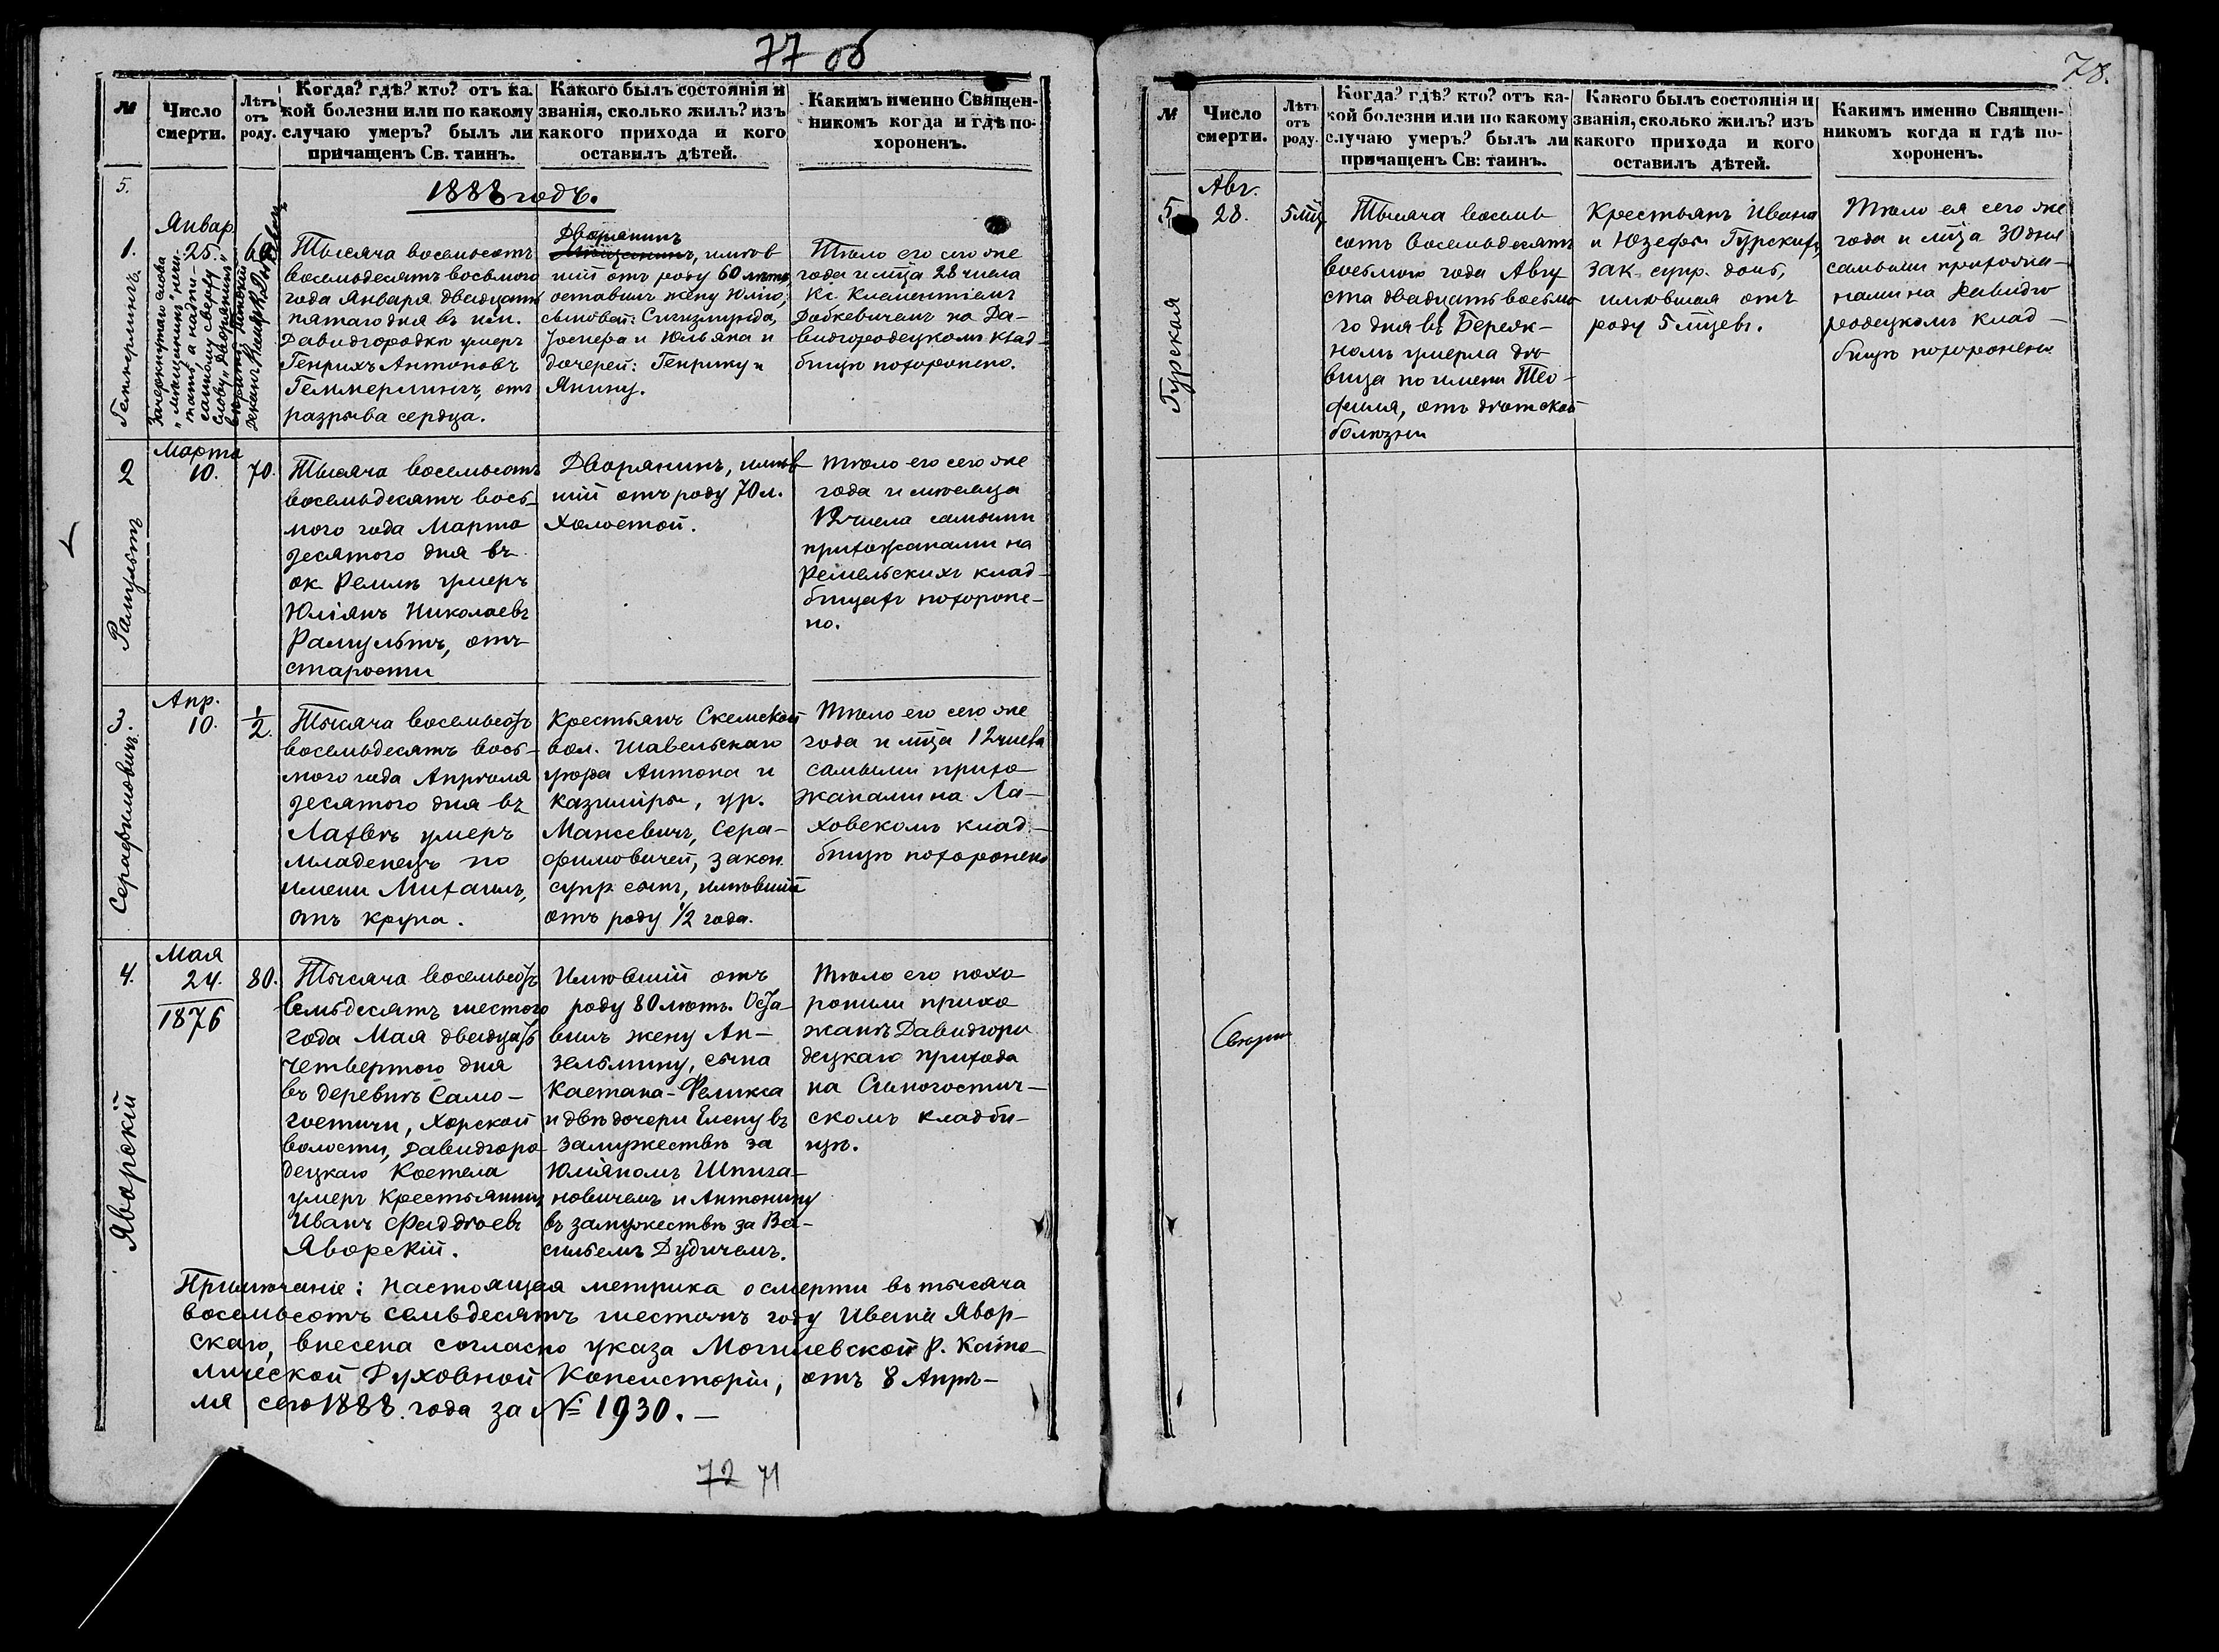 77 об
№
Число
смерти.
Лѣтъ
отъ
роду.
Когда? гдѣ? кто? отъ ка-
кой болезни или по какому
случаю умеръ? былъ ли
причащенъ Св. таинъ.
Какого былъ состоянія и
званія, сколько жилъ? изъ
какого прихода и кого
оставилъ дѣтей.
Какимъ именно Священ-
никомъ когда и гдѣ по-
хороненъ.
5.
1888 годъ.
1.
Геммерлингъ
Январ.
25.
60
Зачеркнутаго слова
"мѣщанинъ" не чи-
тать, а надпи-
санному сверху
слову "Дворянинъ"
вѣрить
Деканъ
Тысяча восемьсотъ
восемьдесятъ восьмого
года Января двадцать
пятаго дня въ им.
Давидгородкѣ умеръ
Генрихъ Антоновъ
Геммерлингъ, отъ
разрыва сердца.
Дворянинъ
Мѣщанинъ, имѣв
шій отъ роду 60 лѣтъ,
оставилъ жену Юлію,
сыновей: Сигизмунда,
Іосифа и Юльяна и
дочерей: Генрику и
Янину.
Тѣло его сего же
года и мца 28 числа
Кс. Клементіемъ
на Да-
видгородецкомъ клад-
бищѣ похоронено.
2
Рамультъ
Марта
10.
70.
Тысяча восемьсотъ
восемьдесятъ вось-
мого года Марта
десятого дня въ
ок. Ремлѣ умеръ
Юліянъ Николаевъ
Рамультъ, отъ
старости
Дворянинъ, имѣв
шій отъ роду 70 л.
Холостой.
Тѣло его сего же
года и мѣсяца
12 числа самыми
прихожанами на
Ремельскихъ клад-
бищахъ похороне-
но.
3.
Серафимовичъ.
Апр.
10.
1/2.
Тысяча восемьсотъ
восемьдесятъ вось-
мого года Апрѣля
десятого дня въ
Лахвѣ умеръ
младенецъ по
имени Михаилъ,
отъ крупа.
Крестьянъ Скемской
вол. Шавельскаго
уѣзда Антона и
Казиміры, ур.
Мацкевичъ, Сера-
фимовичей, закон.
супр. сынъ, имѣвшій
отъ роду 1/2 года.
Тѣло его сего же
года и мца 12 числа
самыми прихо-
жанами на Ла-
ховскомъ клад-
бищѣ похоронено
4.
Яворскій
Мая
24.
1876
80.
Тысяча восемьсотъ
семьдесятъ шестого
года Мая двадцать
четвертого дня
въ деревнѣ Само-
гостичи, Хорской
волости, Давидгоро-
децкаго Костела
умеръ Крестьянинъ
Иванъ Фаддѣевъ
Яворскій.
Имѣвшій отъ
роду 80 лѣтъ. Оста-
вилъ жену Ан-
зельмину, сына
Каетана-Феликса
и двѣ дочери Елену въ
замужествѣ за
Юліяномъ Шпига-
новичемъ и Антонину
въ замужествѣ за Ва-
сильемъ Дудичемъ.
Тѣло его похо
ронили прихо
жане Давидгоро
децкаго прихода
на Самогостич-
скомъ кладби-
щѣ.
Примѣчаніе: Настоящая метрика о смерти въ тысяча
восемьсотъ семьдесятъ шестомъ году Ивана Явор-
скаго, внесена согласно указа Могилевской Р. Като-
лической Духовной Консисторіи, отъ 8 Апрѣ-
ля сего 1888 года за № 1930. —
72 71
78.
№
Число
смерти.
Лѣтъ
отъ
роду.
Когда? гдѣ? кто? отъ ка-
кой болезни или по какому
случаю умеръ? былъ ли
причащенъ Св: таинъ.
Какого былъ состоянія и
званія, сколько жилъ? изъ
какого прихода и кого
оставилъ дѣтей.
Какимъ именно Священ-
никомъ когда и гдѣ по-
хороненъ.
5
Гурская
Авг.
28.
5 мц
Тысяча восемь
сотъ восемьдесятъ
восьмого года Авгу
ста двадцать восьмо
го дня въ Береж-
номъ умерла дѣ
вица по имени Тео-
филя, отъ дѣтской
болѣзни
Крестьянъ Ивана
и Юзефы Гурскихъ
зак. супр. дочь,
имѣвшая отъ
роду 5 мцевъ.
Тѣло ея сего же
года и мца 30 дня
самыми прихожа-
нами на Давидго
родецкомъ клад-
бищѣ похоронено